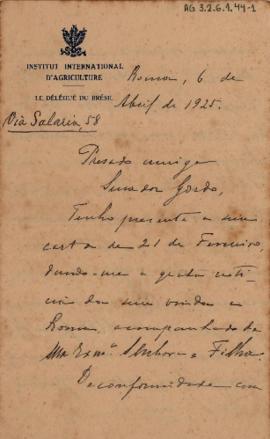 AG 3.2.6.1.44-1
INSTITUT INTERNATIONAL
D'AGRICULTURE
LE DÉLÉGUÉ DU BRÉSIL
Via Salaria, 58
Roma, 6 de
Abril de 1925.
Presado amigo
Senador Gordo,
Tenho presente a sua
carta de 21 de Fevereiro,
dando-me a grata noti-
cia da sua vinda a
Roma, acompanhado da
sua Exmª. Senhora e Filha.
De conformidade com